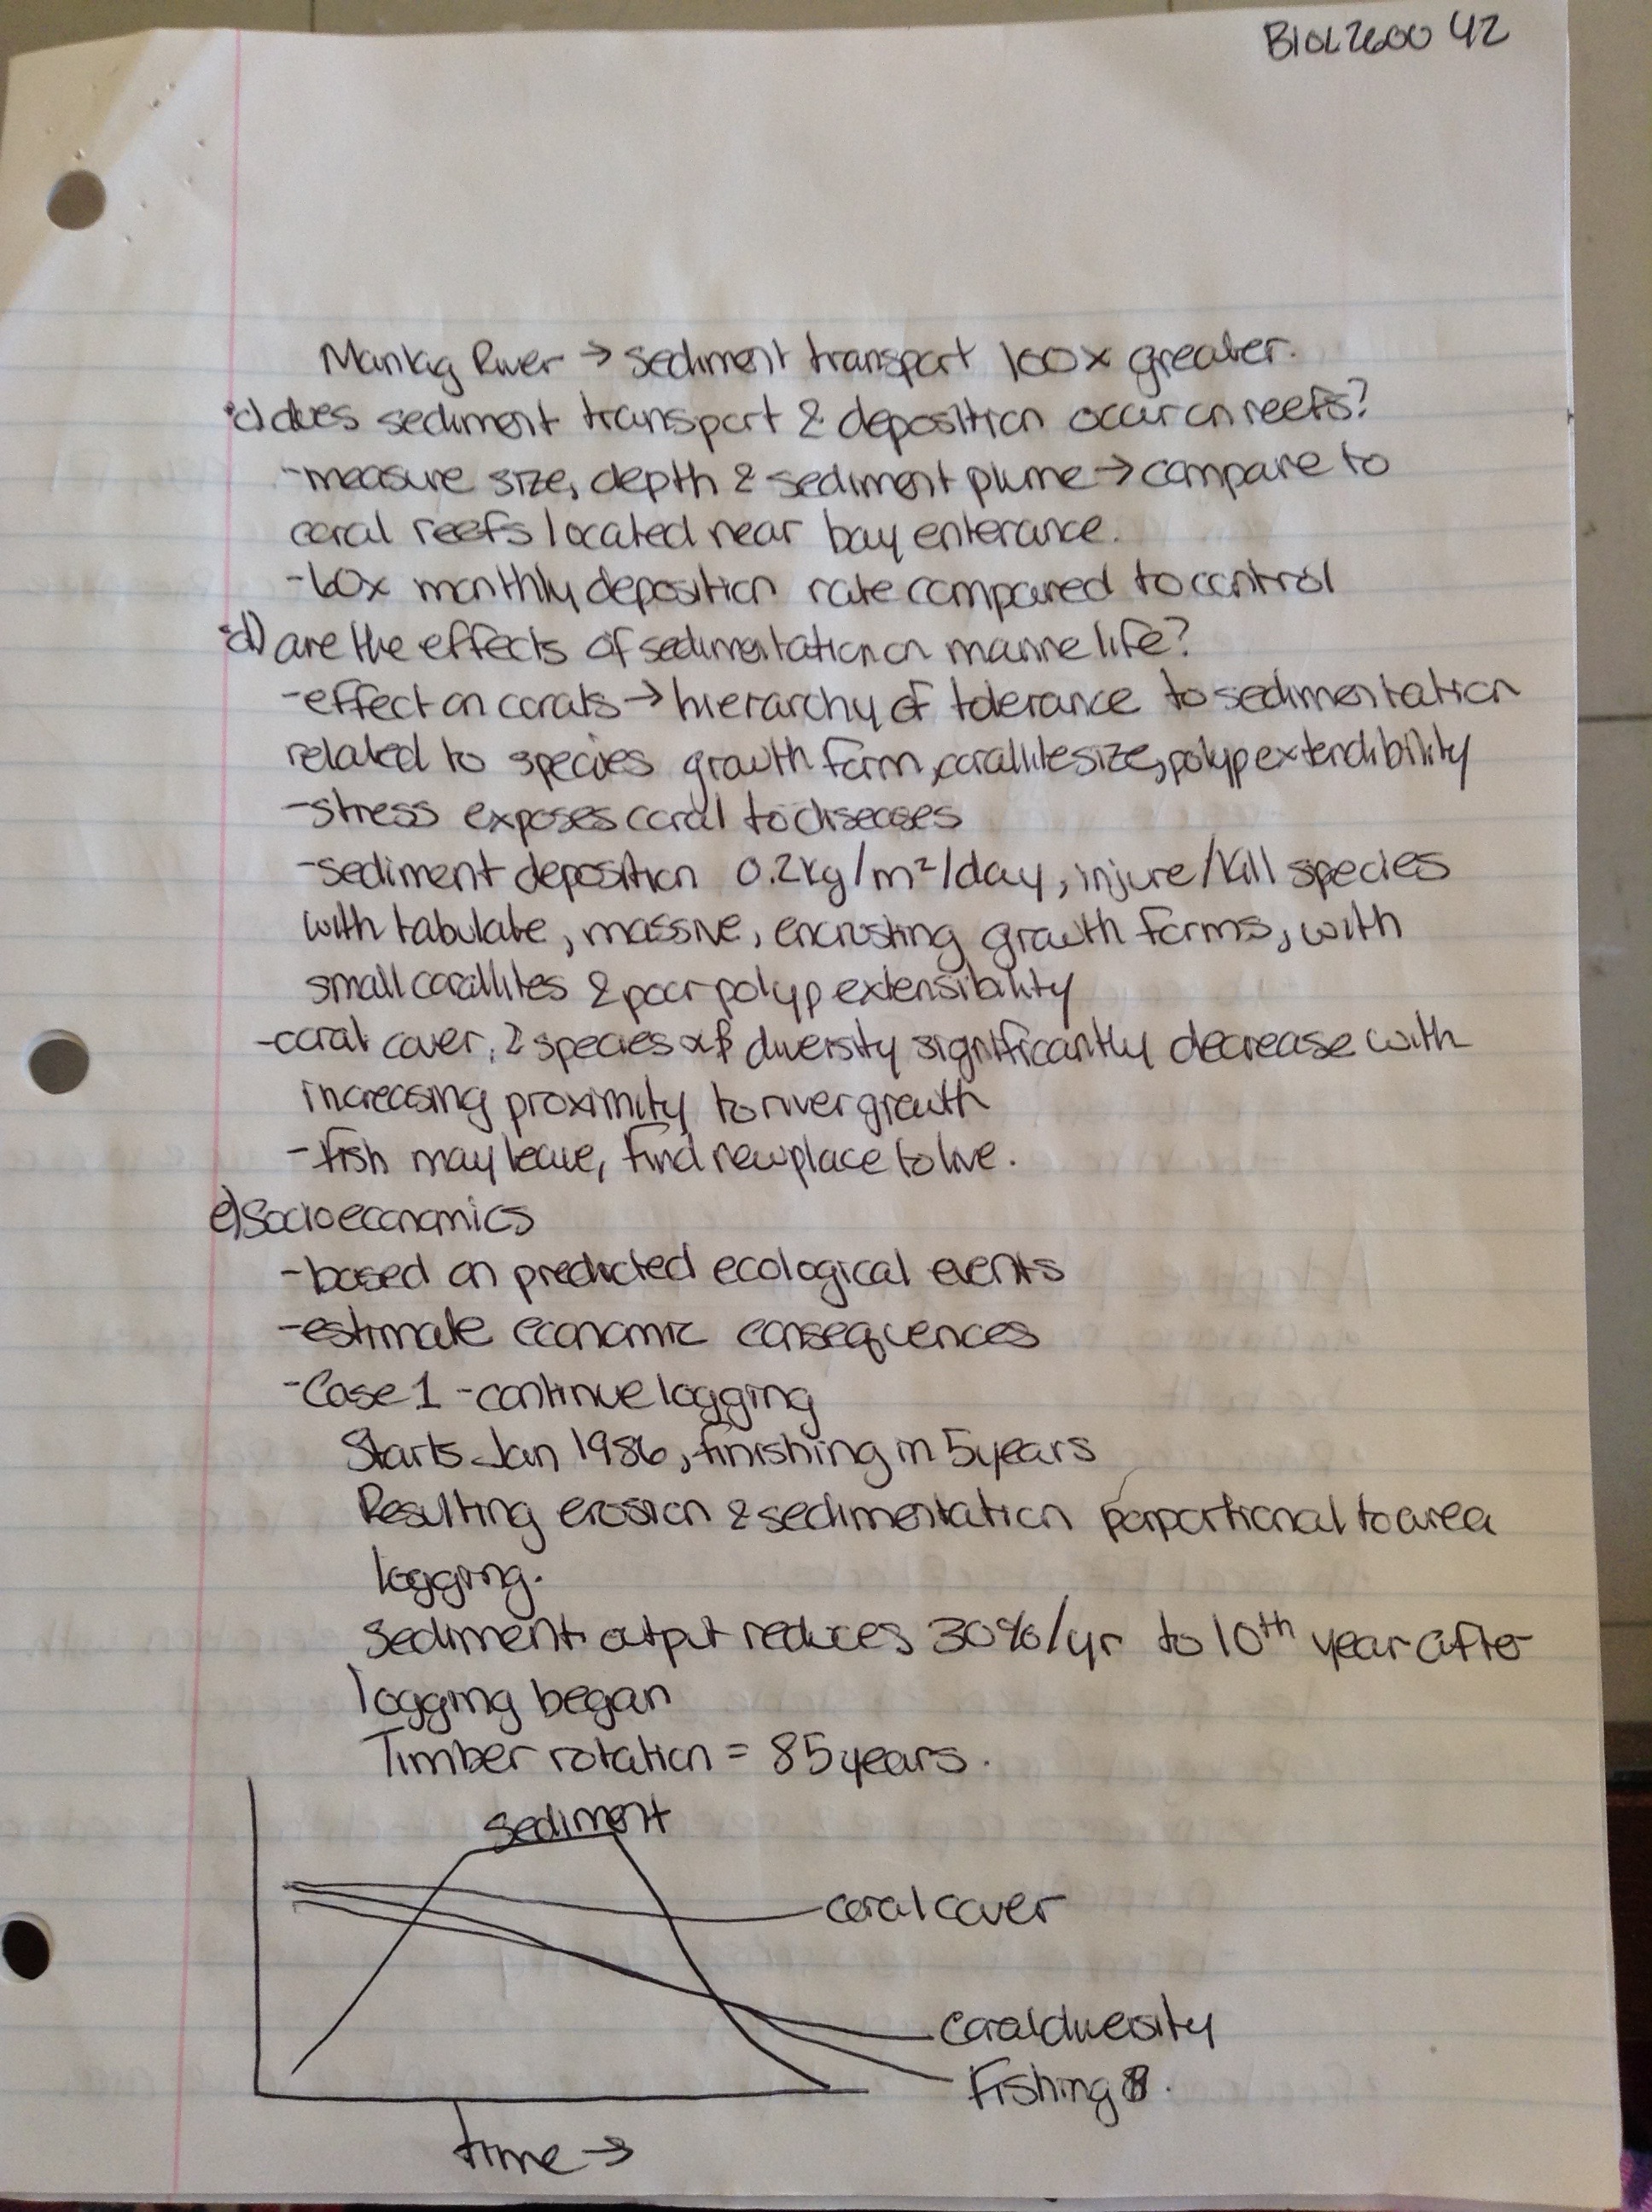 BIOL2600 42
Manlag River → sediment transport 100x greater.
c) does sediment transport & deposition occur on reefs?
-measure size, depth & sediment plume → compare to
coral reefs located near bay enterance.
-60x monthly deposition rate compared to control
d) are the effects of sedimentation on marine life?
-effect on corals → hierarchy of tolerance to sedimentation
related to species growth form, corallite size, polyp extendibility
-stress exposes coral to diseases
-sediment deposition 0.2kg/m²/day, injure/kill species
with tabulate, massive, encrusting growth forms, with
small corallites & poor polyp extensibility
-coral cover, & species diversity significantly decrease with
increasing proximity to river growth
-fish may leave, find new place to live.
e) Socioeconomics
-based on predicted ecological events
-estimate economic consequences
-Case 1 -continue logging
Starts Jan 1986, finishing in 5 years
Resulting erosion & sedimentation porportional to area
logging.
Sediment output reduces 30%/yr to 10th year after
logging began
Timber rotation = 85 years.
sediment
coral cover
coral diversity
Fishing
time →